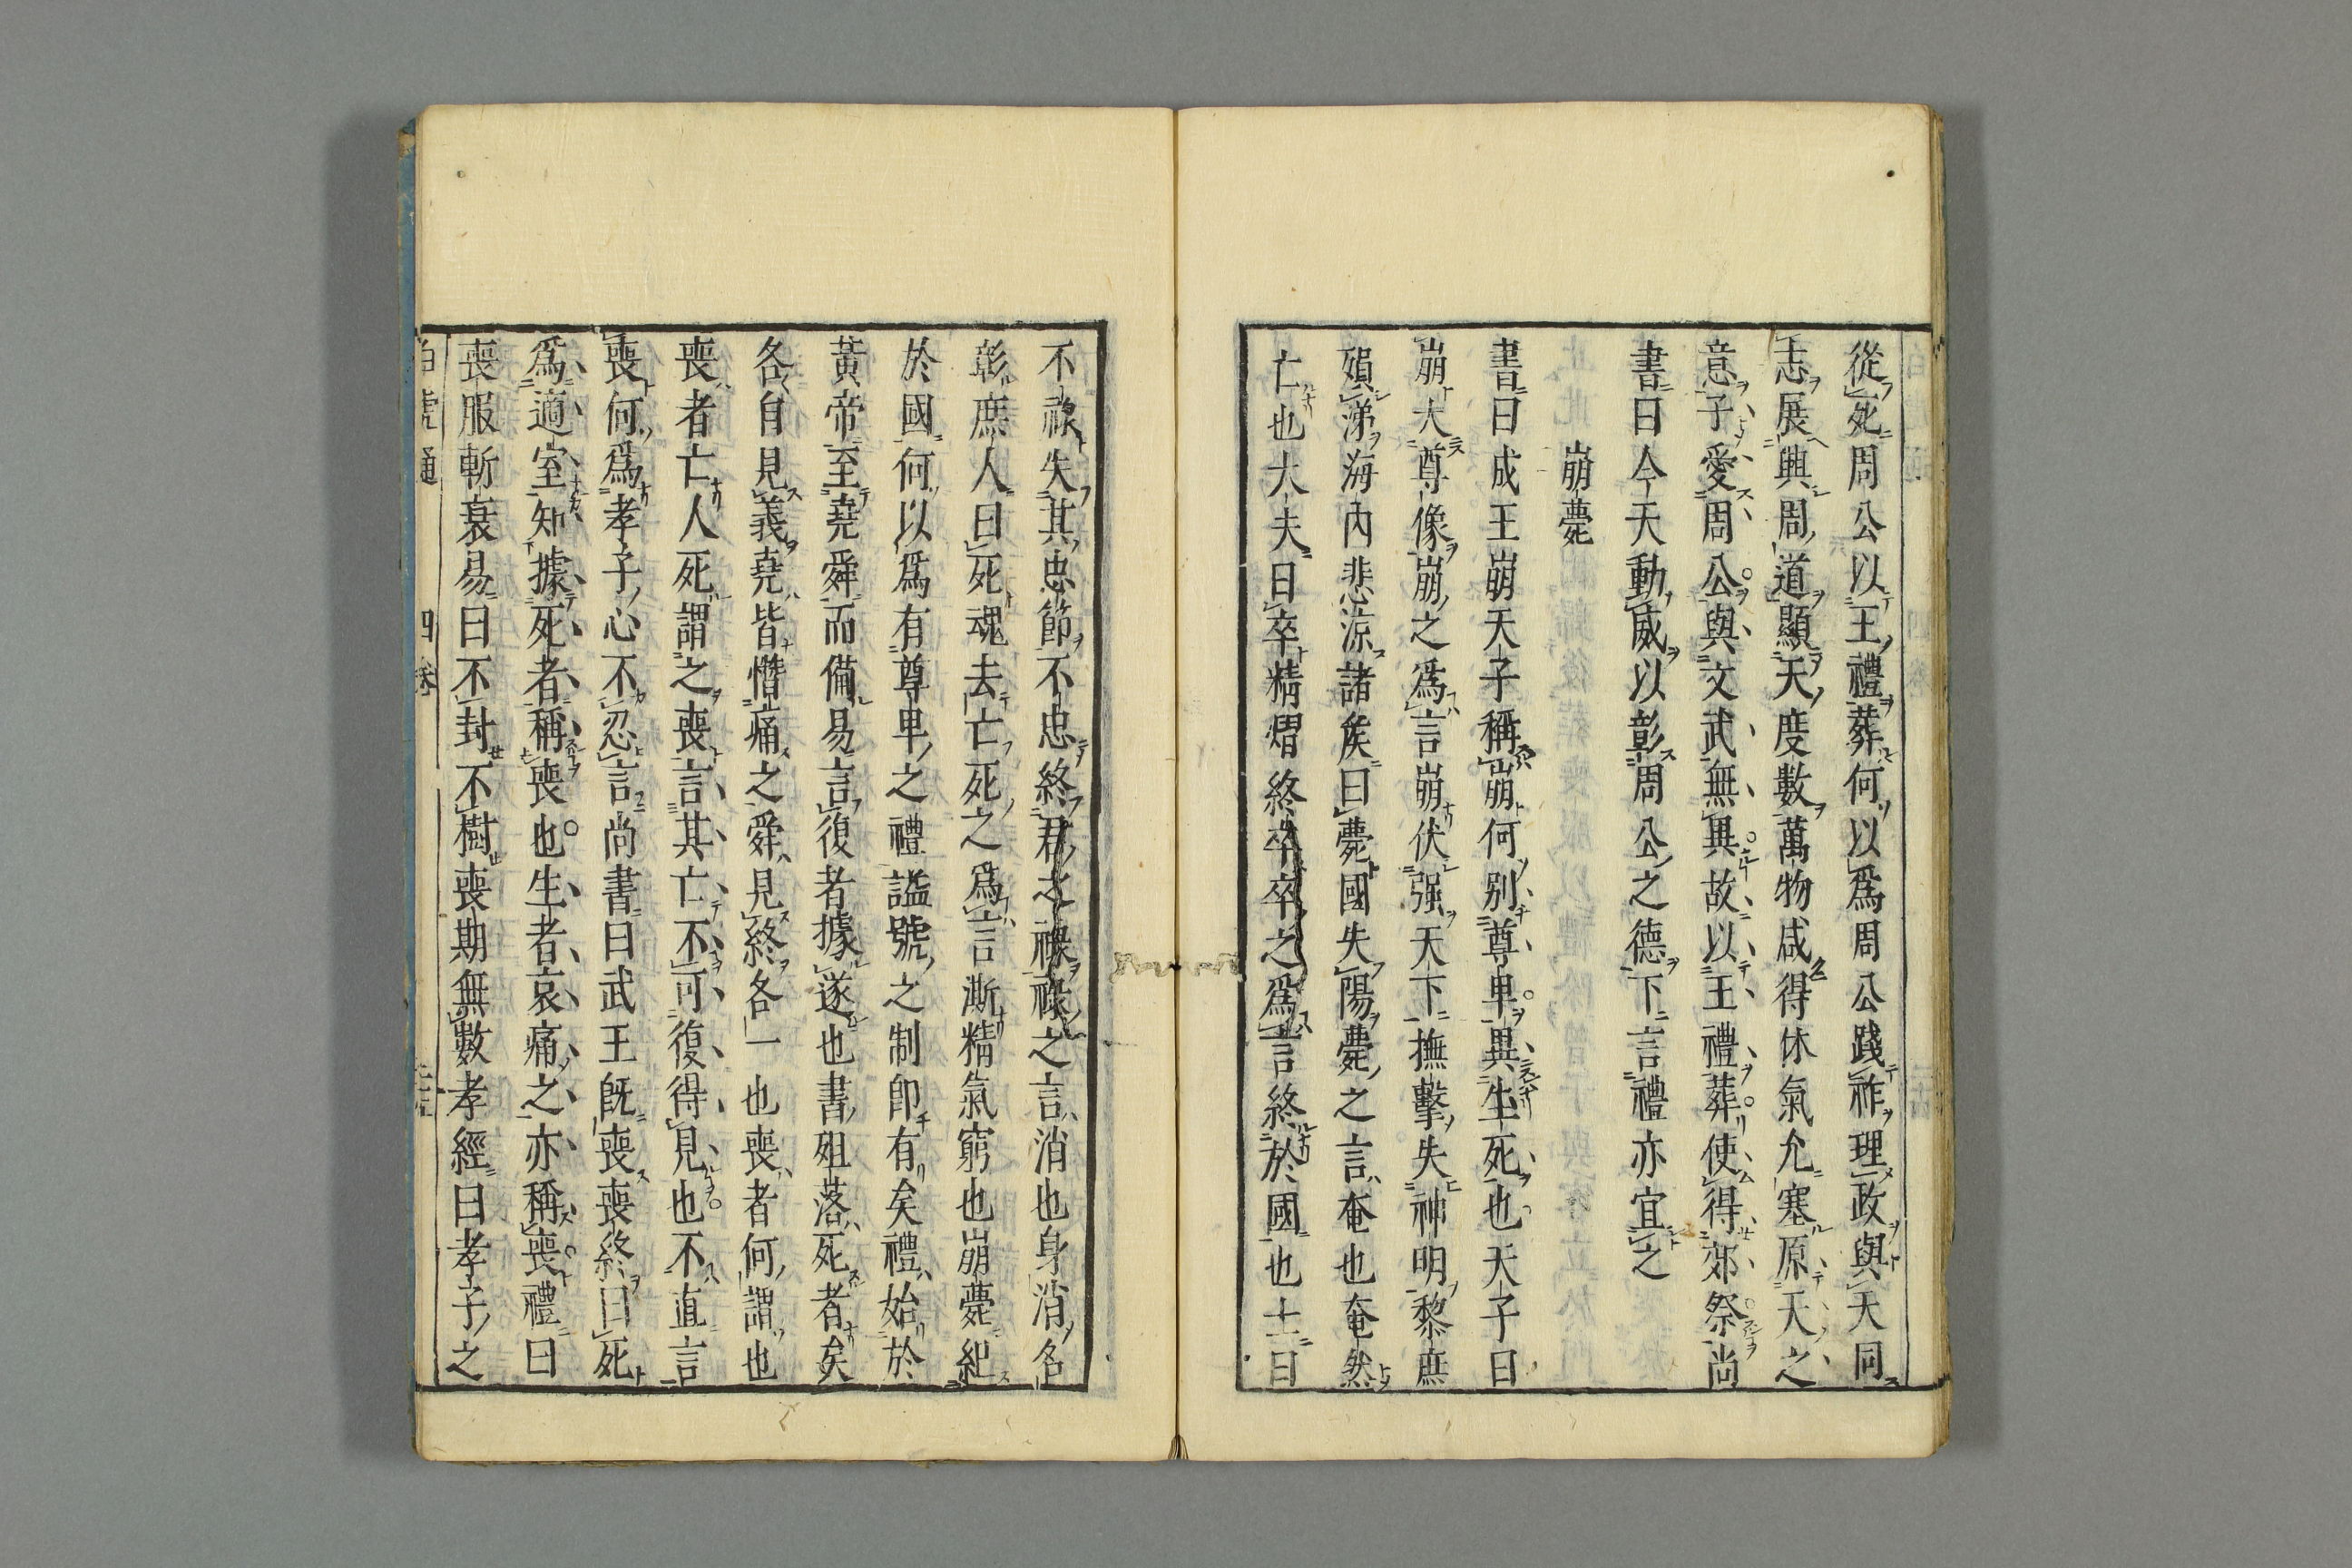 從死周公以王禮葬何以爲周公踐祚理政與天同
志展興周道顯天度數萬物咸得休氣允塞原天之
意子愛周公與文武無異故以王禮葬使得郊祭尚
書曰今天動威以彰周公之德下言禮亦宜之
崩薨
書曰成王崩天子稱崩何別尊卑異生死也天子曰
崩大尊像崩之爲言崩伏强天下撫擊失神明黎庶
殞涕海內悲涼諸矦曰薨國失陽薨之言奄也奄然
亡也大夫曰卒精熠終卒卒之爲言終於國也士曰
不祿失其忠節不忠終君之祿祿之言消也身消名
彰庶人曰死魂去亡死之爲言澌精氣窮也崩薨紀
於國何以爲有尊卑之禮謚號之制卽有矣禮始於
黃帝至堯舜而備易言復者據遂也書殂落死者矣
各自見義堯皆憯痛之舜見終各一也喪者何謂也
喪者亡人死謂之喪言其亡不可復得見也不直言
喪何爲孝子心不忍言尚書曰武王旣喪喪終曰死
爲適室知據死者稱喪也生者哀痛之亦稱喪禮曰
喪服斬衰易曰不封不樹喪期無數孝經曰孝子之
白虎通 四卷